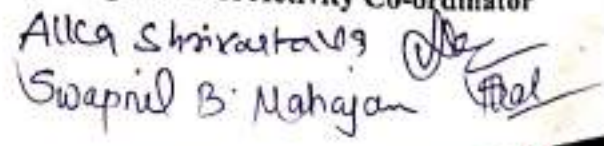 Co-ordinator
Alka Shrivastava
Swapnil B. Mahajan